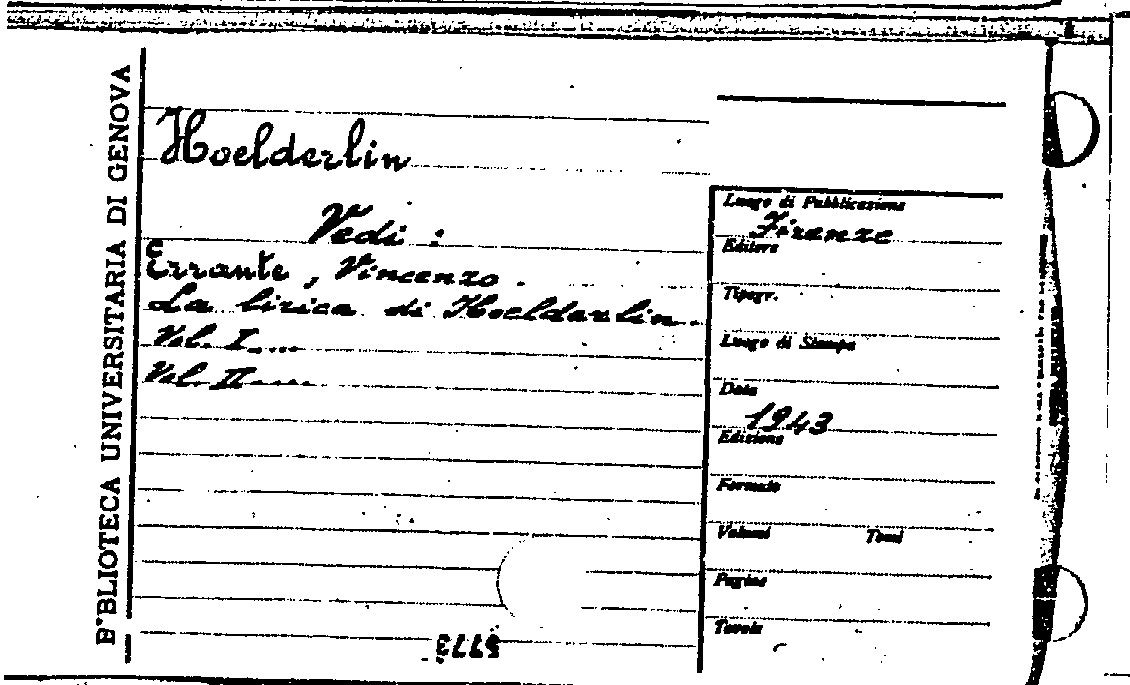 BIBLIOTECA UNIVERSITARIA DI GENOVA
Hoelderlin
Vedi :
Errante, Vincenzo.
La lirica di Hoelderlin.
Vol. I....
Vol. II....
Luogo di Pubblicazione
Firenze
Editore
Tipogr.
Luogo di Stampa
Data
1943
Edizione
Formato
Volumi Tomi
Pagine
Tavole